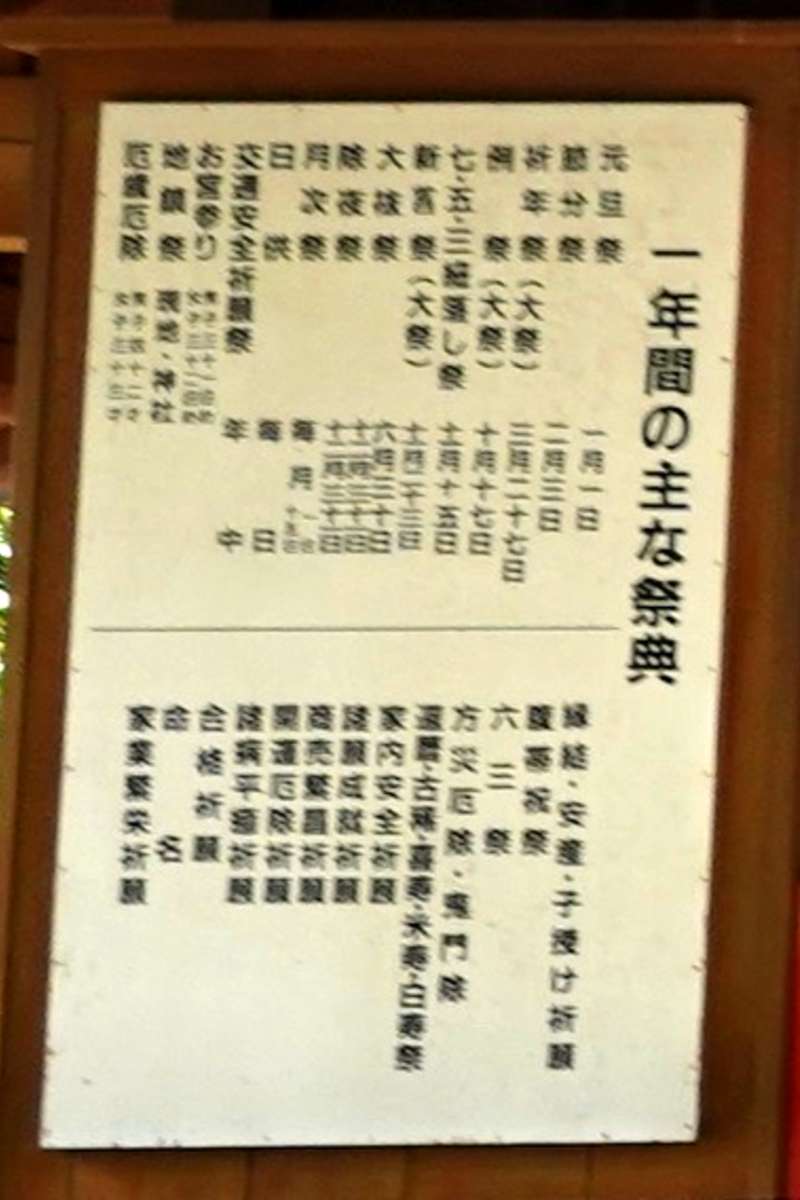 一年間の主な祭典
元旦祭 一月一日
節分祭 二月三日
祈年祭（大祭） 三月二十七日
例祭（大祭） 十月十七日
七・五・三紐落し祭 十一月十五日
新嘗祭（大祭） 十一月二十三日
大祓祭 六月三十日 十二月三十一日
除夜祭 十二月三十一日
月次祭 毎月 一日 十五日
日供 毎日
交通安全祈願祭 年中
お宮参り 男子三十一日 女子三十二日
地鎮祭 現地・神社
厄歳厄除 男子四十二才 女子三十三才
縁結・安産・子授け祈願
腹帯祝祭
六三祭
方災厄除・鬼門除
還暦・古稀・喜寿・米寿・白寿祭
家内安全祈願
諸願成就祈願
商売繁昌祈願
開運厄除祈願
諸病平癒祈願
合格祈願
命名
家業繁栄祈願